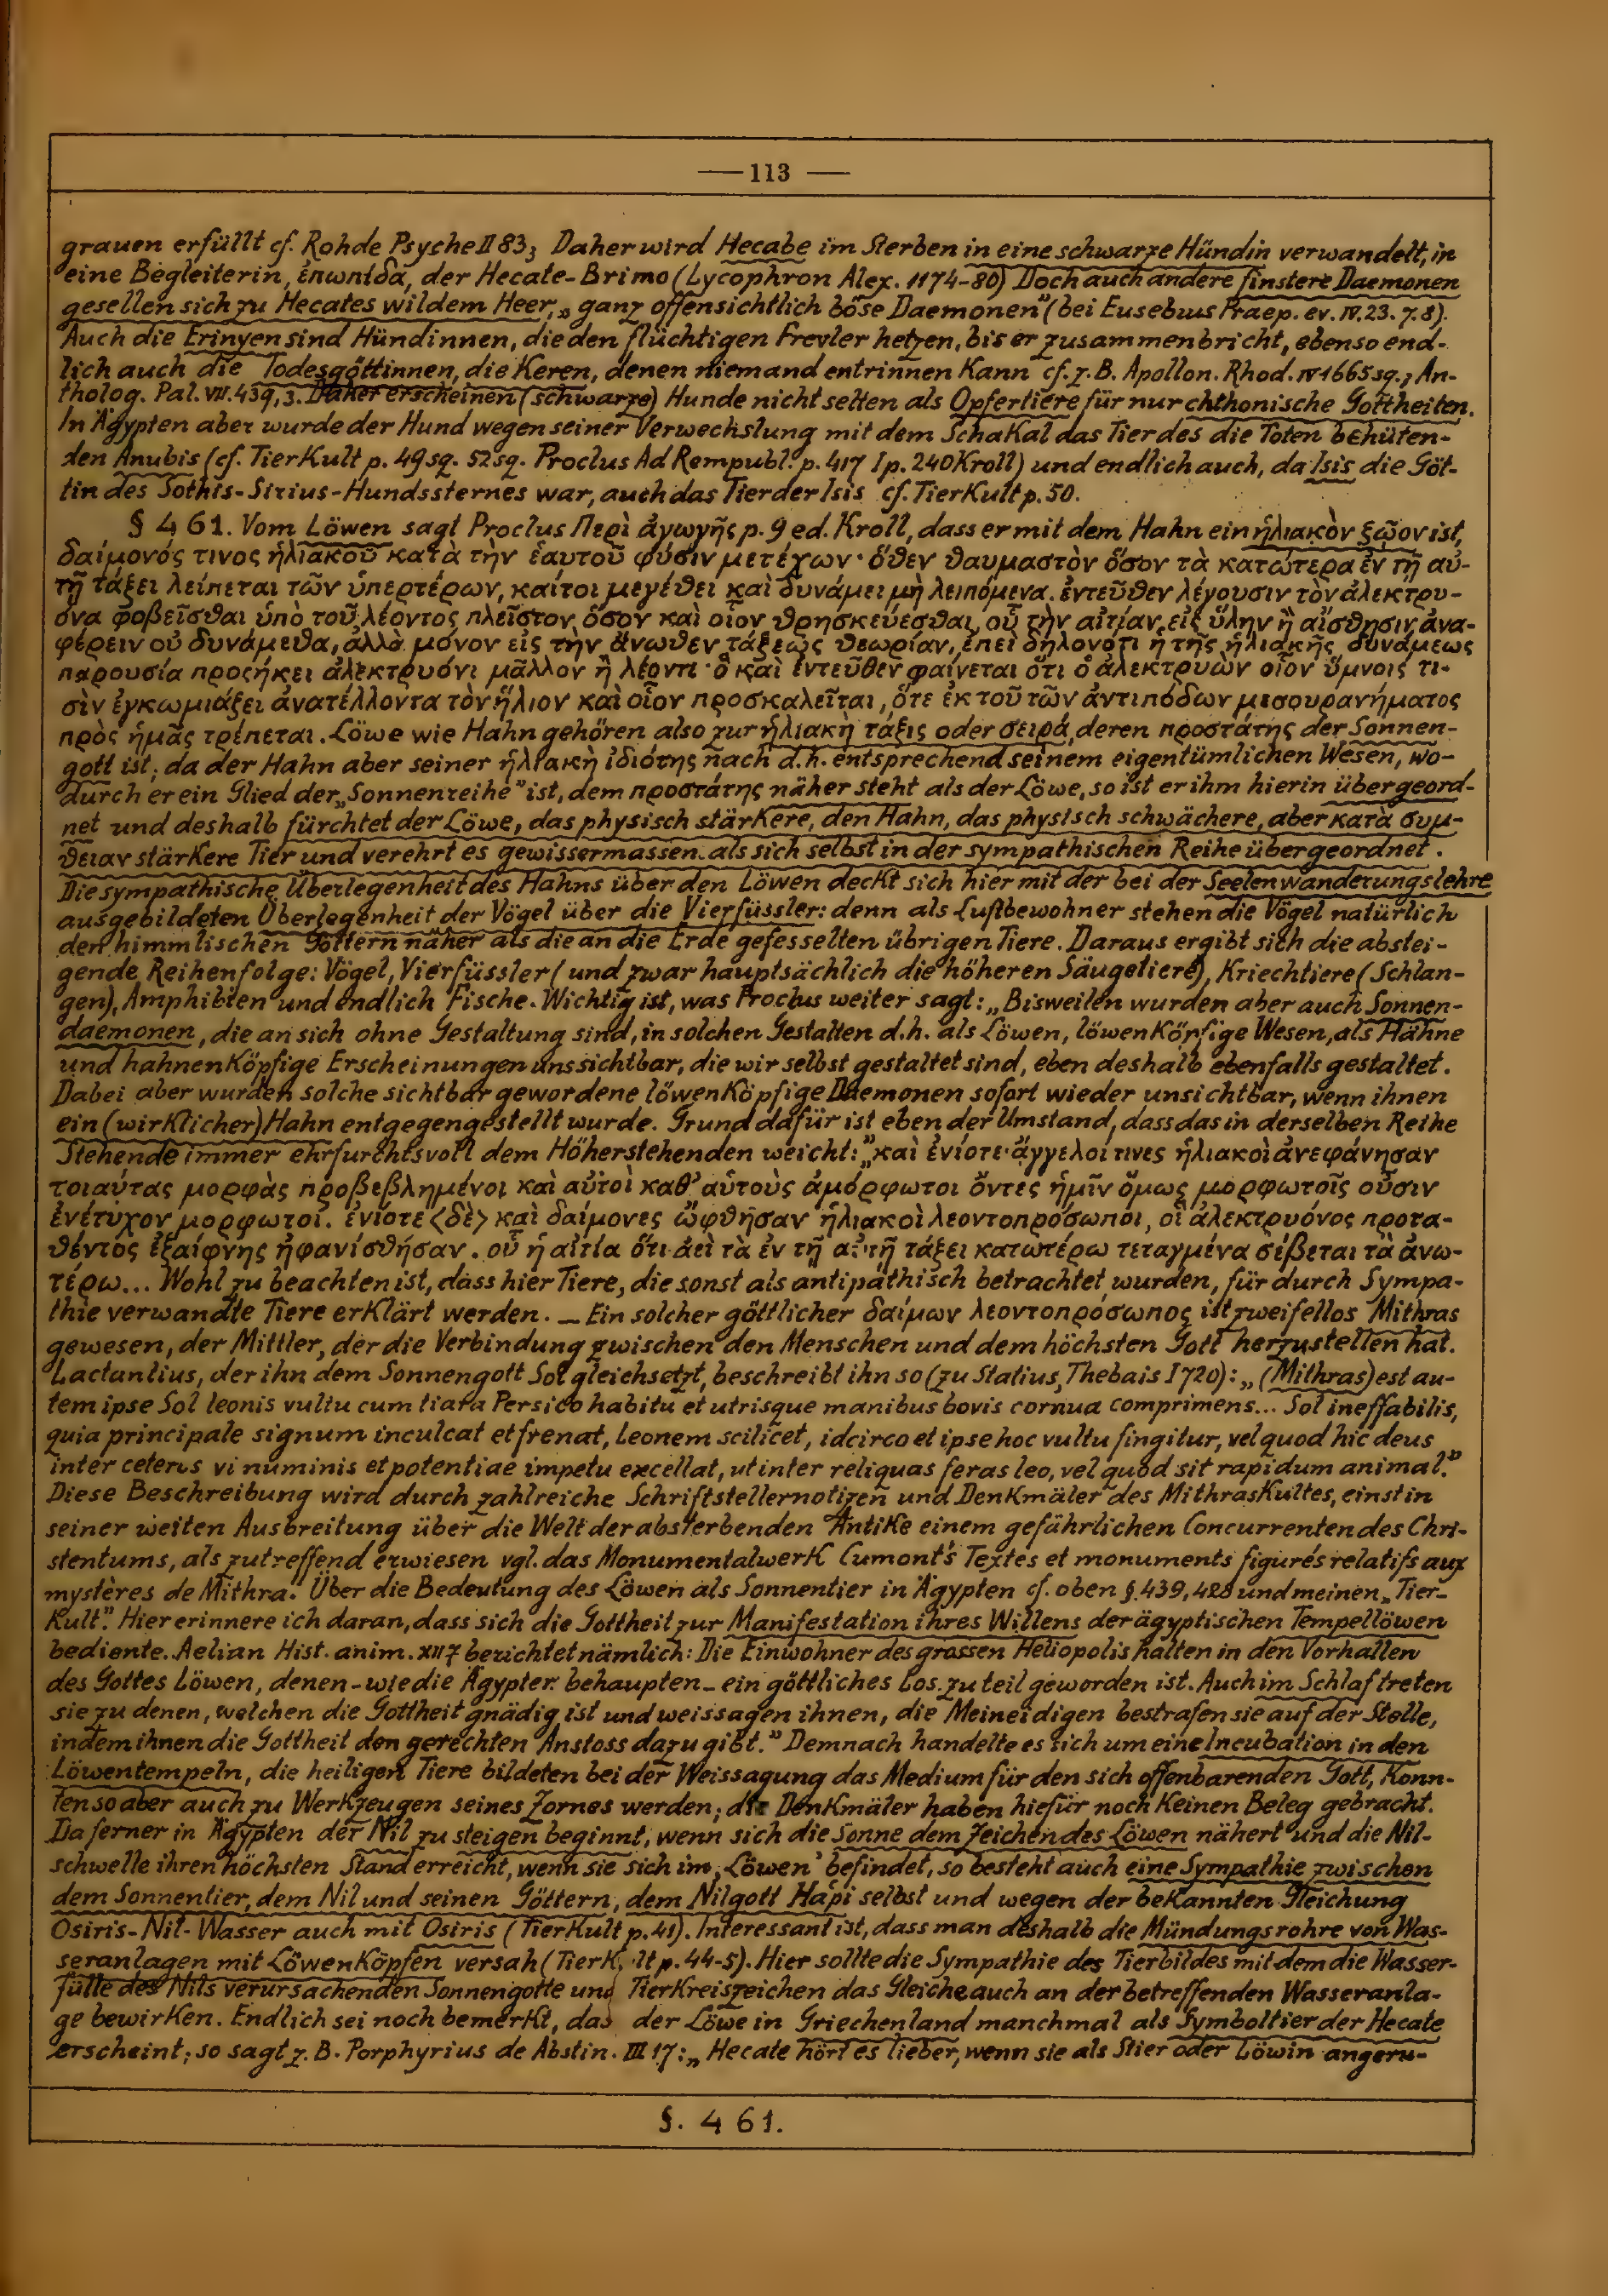 — 113 —
grauen erfüllt cf. Rohde Psyche II 83; Daher wird Hecabe im Sterben in eine schwarze Hündin verwandelt, in
eine Begleiterin, ἑπωπίδα, der Hecate-Brimo (Lycophron Alex. 1174-80) Doch auch andere finstere Daemonen
gesellen sich zu Hecates wildem Heer, „ganz offensichtlich böse Daemonen" (bei Eusebius Praep. ev. IV. 23. 7. 8).
Auch die Erinyen sind Hündinnen, die den flüchtigen Frevler hetzen, bis er zusammenbricht, ebenso end-
lich auch die Todesgöttinnen, die Keren, denen niemand entrinnen kann cf. z. B. Apollon. Rhod. IV 1665 sq.; An-
tholog. Pal. VII. 439, 3. Daher erscheinen (schwarze) Hunde nicht selten als Opfertiere für nur chthonische Gottheiten.
In Ägypten aber wurde der Hund wegen seiner Verwechslung mit dem Schakal das Tier des die Toten behüten-
den Anubis (cf. Tierkult p. 49 sq. 52 sq. Proclus Ad Rempubl. p. 417 I p. 240 Kroll) und endlich auch, da Isis die Göt-
tin des Sothis-Sirius-Hundssternes war, auch das Tier der Isis cf. Tierkult p. 50.
§ 461. Vom Löwen sagt Proclus Περὶ ἀγωγῆς p. 9 ed. Kroll, dass er mit dem Hahn ein ἡλιακὸν ζῷον ist,
δαίμονός τινος ἡλιακοῦ κατὰ τὴν ἑαυτοῦ φύσιν μετέχων· ὅθεν θαυμαστὸν ὅσον τὰ κατώτερα ἐν τῇ αὐ-
τῇ τάξει λείπεται τῶν ὑπερτέρων, καίτοι μεγέθει καὶ δυνάμει μὴ λειπόμενα. ἐντεῦθεν λέγουσιν τὸν ἀλεκτρυ-
όνα φοβεῖσθαι ὑπὸ τοῦ λέοντος πλεῖστον ὅσον καὶ οἷον θρησκεύεσθαι, οὗ τὴν αἰτίαν εἰς ὕλην ἢ αἴσθησιν ἀνα-
φέρειν οὐ δυνάμεθα, ἀλλὰ μόνον εἰς τὴν ἄνωθεν τάξεως θεωρίαν, ἐπεὶ δηλονότι ἡ τῆς ἡλιακῆς δυνάμεως
παρουσία προσήκει ἀλεκτρυόνι μᾶλλον ἢ λέοντι· ὃ καὶ ἐντεῦθεν φαίνεται ὅτι ὁ ἀλεκτρυὼν οἷον ὕμνοις τι-
σὶν ἐγκωμιάζει ἀνατέλλοντα τὸν ἥλιον καὶ οἷον προσκαλεῖται, ὅτε ἐκ τοῦ τῶν ἀντιπόδων μεσουρανήματος
πρὸς ἡμᾶς τρέπεται. Löwe wie Hahn gehören also zur ἡλιακὴ τάξις oder σειρά, deren προστάτης der Sonnen-
gott ist; da der Hahn aber seiner ἡλιακὴ ἰδιότης nach d. h. entsprechend seinem eigentümlichen Wesen, wo-
durch er ein Glied der „Sonnenreihe" ist, dem προστάτης näher steht als der Löwe, so ist er ihm hierin übergeord-
net und deshalb fürchtet der Löwe, das physisch stärkere, den Hahn, das physisch schwächere, aber κατὰ συμ-
θειαν stärkere Tier und verehrt es gewissermassen als sich selbst in der sympathischen Reihe übergeordnet.
Die sympathische Überlegenheit des Hahns über den Löwen deckt sich hier mit der bei der Seelenwanderungslehre
ausgebildeten Überlegenheit der Vögel über die Vierfüssler: denn als Luftbewohner stehen die Vögel natürlich
den himmlischen Göttern näher als die an die Erde gefesselten übrigen Tiere. Daraus ergibt sich die abstei-
gende Reihenfolge: Vögel, Vierfüssler (und zwar hauptsächlich die höheren Säugetiere), Kriechtiere (Schlan-
gen), Amphibien und endlich Fische. Wichtig ist, was Proclus weiter sagt: „Bisweilen wurden aber auch Sonnen-
daemonen, die an sich ohne Gestaltung sind, in solchen Gestalten d. h. als Löwen, löwenköpfige Wesen, als Hähne
und hahnenköpfige Erscheinungen uns sichtbar, die wir selbst gestaltet sind, eben deshalb ebenfalls gestaltet.
Dabei aber wurden solche sichtbar gewordene löwenköpfige Daemonen sofort wieder unsichtbar, wenn ihnen
ein (wirklicher) Hahn entgegengestellt wurde. Grund dafür ist eben der Umstand, dass das in derselben Reihe
Stehende immer ehrfurchtsvoll dem Höherstehenden weicht:" καὶ ἐνίοτε ἄγγελοί τινες ἡλιακοὶ ἀνεφάνησαν
τοιαύτας μορφὰς προβεβλημένοι καὶ αὐτοὶ καθ' αὑτοὺς ἀμόρφωτοι ὄντες ἡμῖν ὅμως μορφωτοῖς οὖσιν
ἐνέτυχον μορφωτοί. ἐνίοτε <δὲ> καὶ δαίμονες ὤφθησαν ἡλιακοὶ λεοντοπρόσωποι, οἳ ἀλεκτρυόνος προτα-
θέντος ἐξαίφνης ἠφανίσθησαν. οὗ ἡ αἰτία ὅτι ἀεὶ τὰ ἐν τῇ αὐτῇ τάξει κατωτέρω τεταγμένα σέβεται τὰ ἀνω-
τέρω... Wohl zu beachten ist, dass hier Tiere, die sonst als antipathisch betrachtet wurden, für durch Sympa-
thie verwandte Tiere erklärt werden. — Ein solcher göttlicher δαίμων λεοντοπρόσωπος ist zweifellos Mithras
gewesen, der Mittler, der die Verbindung zwischen den Menschen und dem höchsten Gott herzustellen hat.
Lactantius, der ihn dem Sonnengott Sol gleichsetzt, beschreibt ihn so (zu Statius, Thebais I 720): „(Mithras) est au-
tem ipse Sol leonis vultu cum tiara Persico habitu et utrisque manibus bovis cornua comprimens... Sol ineffabilis,
quia principale signum inculcat et frenat, leonem scilicet, idcirco et ipse hoc vultu fingitur, vel quod hic deus
inter ceteros vi numinis et potentiae impetu excellat, ut inter reliquas feras leo, vel quod sit rapidum animal."
Diese Beschreibung wird durch zahlreiche Schriftstellernotizen und Denkmäler des Mithraskultes, einst in
seiner weiten Ausbreitung über die Welt der absterbenden Antike einem gefährlichen Concurrenten des Chri-
stentums, als zutreffend erwiesen vgl. das Monumentalwerk Cumont's Textes et monuments figurés relatifs aux
mystères de Mithra. Über die Bedeutung des Löwen als Sonnentier in Ägypten cf. oben §. 439, 428 und meinen „Tier-
kult". Hier erinnere ich daran, dass sich die Gottheit zur Manifestation ihres Willens der ägyptischen Tempellöwen
bediente. Aelian Hist. anim. XII 7 berichtet nämlich: Die Einwohner des grossen Heliopolis halten in den Vorhallen
des Gottes Löwen, denen - wie die Ägypter behaupten - ein göttliches Los zu teil geworden ist. Auch im Schlaf treten
sie zu denen, welchen die Gottheit gnädig ist und weissagen ihnen, die Meineidigen bestrafen sie auf der Stelle,
indem ihnen die Gottheit den gerechten Anstoss dazu gibt." Demnach handelte es sich um eine Incubation in den
Löwentempeln, die heiligen Tiere bildeten bei der Weissagung das Medium für den sich offenbarenden Gott, konn-
ten so aber auch zu Werkzeugen seines Zornes werden; die Denkmäler haben hiefür noch keinen Beleg gebracht.
Da ferner in Ägypten der Nil zu steigen beginnt, wenn sich die Sonne dem Zeichen des Löwen nähert und die Nil-
schwelle ihren höchsten Stand erreicht, wenn sie sich im „Löwen' befindet, so besteht auch eine Sympathie zwischen
dem Sonnentier, dem Nil und seinen Göttern, dem Nilgott Hapi selbst und wegen der bekannten Gleichung
Osiris-Nil-Wasser auch mit Osiris (Tierkult p. 41). Interessant ist, dass man deshalb die Mündungsrohre von Was-
seranlagen mit Löwenköpfen versah (Tierk lt p. 44-5). Hier sollte die Sympathie des Tierbildes mit dem die Wasser-
fülle des Nils verursachenden Sonnengotte und Tierkreiszeichen das Gleiche auch an der betreffenden Wasseranla-
ge bewirken. Endlich sei noch bemerkt, das der Löwe in Griechenland manchmal als Symboltier der Hecate
erscheint; so sagt z. B. Porphyrius de Abstin. III 17: „Hecate hört es lieber, wenn sie als Stier oder Löwin angeru-
§. 461.